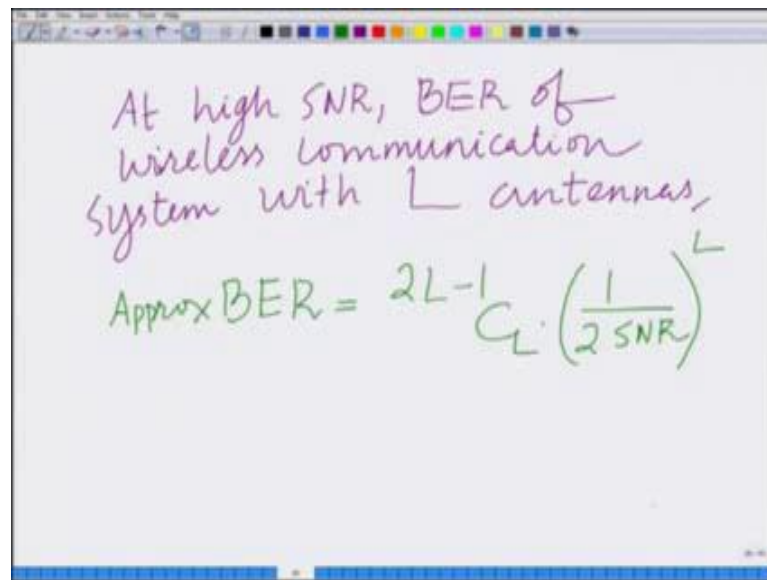 At high SNR, BER of
wireless communication
system with L antennas,
Approx BER = 2L-1 C_L . (1 / 2 SNR)^L